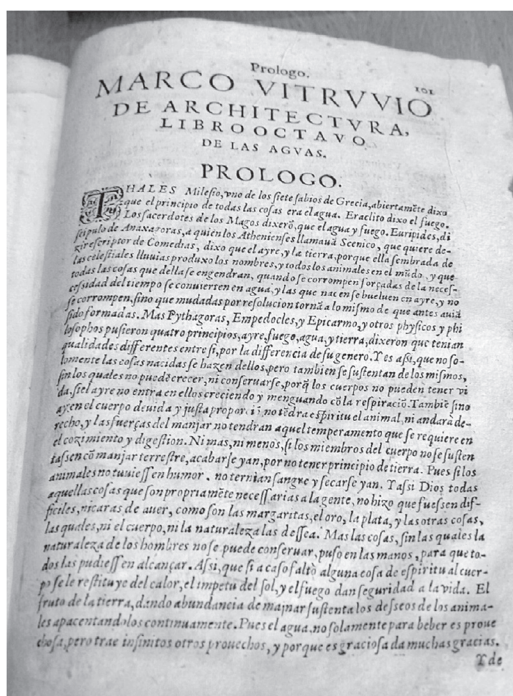 Prologo.
101
MARCO VITRVVIO
DE ARCHITECTVRA,
LIBRO OCTAVO
DE LAS AGVAS.
PROLOGO.
THALES Milesio, vno de los siete sabios de Grecia, abiertamẽte dixo
que el principio de todas las cosas era el agua. Eraclito dixo el fuego.
Los sacerdotes de los Magos dixerõ, que el agua y fuego. Euripides, di
scipulo de Anaxagoras, a quien los Athenienses llamauã Scenico, que quiere de-
zir escriptor de Comedias, dixo que el ayre, y la tierra, porque ella sembrada de
las celestiales lluuias produxo los nombres, y todos los animales en el mũdo. y que
todas las cosas que della se engendran, quando se corrompen forçadas de la neces-
cesidad del tiempo se conuierten en agua, y las que nacen se bueluen en ayre, y no
se corrompen, sino que mudadas por resolucion tornã a lo mismo de que antes auiã
sido formadas. Mas Pythagoras, Empedocles, y Epicarmo, y otros physicos y phi
losophos pusieron quatro principios, ayre, fuego, agua, y tierra, dixeron que tenian
qualidades differentes entre si, por la differencia de su genero. Y es asi, que no so-
lomente las cosas nacidas se hazen dellos, pero tambien se sustentan de los mismos,
sin los quales no puedẽ crecer, ni conseruarse, porq̃ los cuerpos no pueden tener vi
da, si el ayre no entra en ellos creciendo y menguando cõ la respiraciõ. Tambiẽ sino
ay en el cuerpo de vida y justa propor. no tẽdra espiritu el animal, ni andara de-
recho, y las fuerças del manjar no tendran aquel temperamento que se requiere en
el cozimiento y digestion. Ni mas, ni menos, si los miembros del cuerpo no se susten
tassen cõ manjar terrestre, acabarse yan, por no tener principio de tierra. Pues si los
animales no tuuiessen humor, no ternian sangre y secarse yan. Y asi Dios todas
aquellas cosas que son propriamẽte necessarias a la gente, no hizo que fuessen dif-
ficiles, ni caras de auer, como son las margaritas, el oro, la plata, y las otras cosas,
las quales, ni el cuerpo, ni la naturaleza las dessea. Mas las cosas, sin las quales la
naturaleza de los hombres no se puede conseruar, puso en las manos, para que to-
dos las pudiessen alcançar. Asi, que si a caso faltò alguna cosa de espiritu al cuer-
po se le restituye del calor, el impetu del sol, y el fuego dan seguridad a la vida. El
fruto de la tierra, dando abundancia de majnar sustenta los desseos de los anima-
les apacentandolos continuamente. Pues el agua, no solamente para beber es proue
chosa, pero trae infinitos otros prouechos, y porque es graciosa da muchas gracias.
Y de